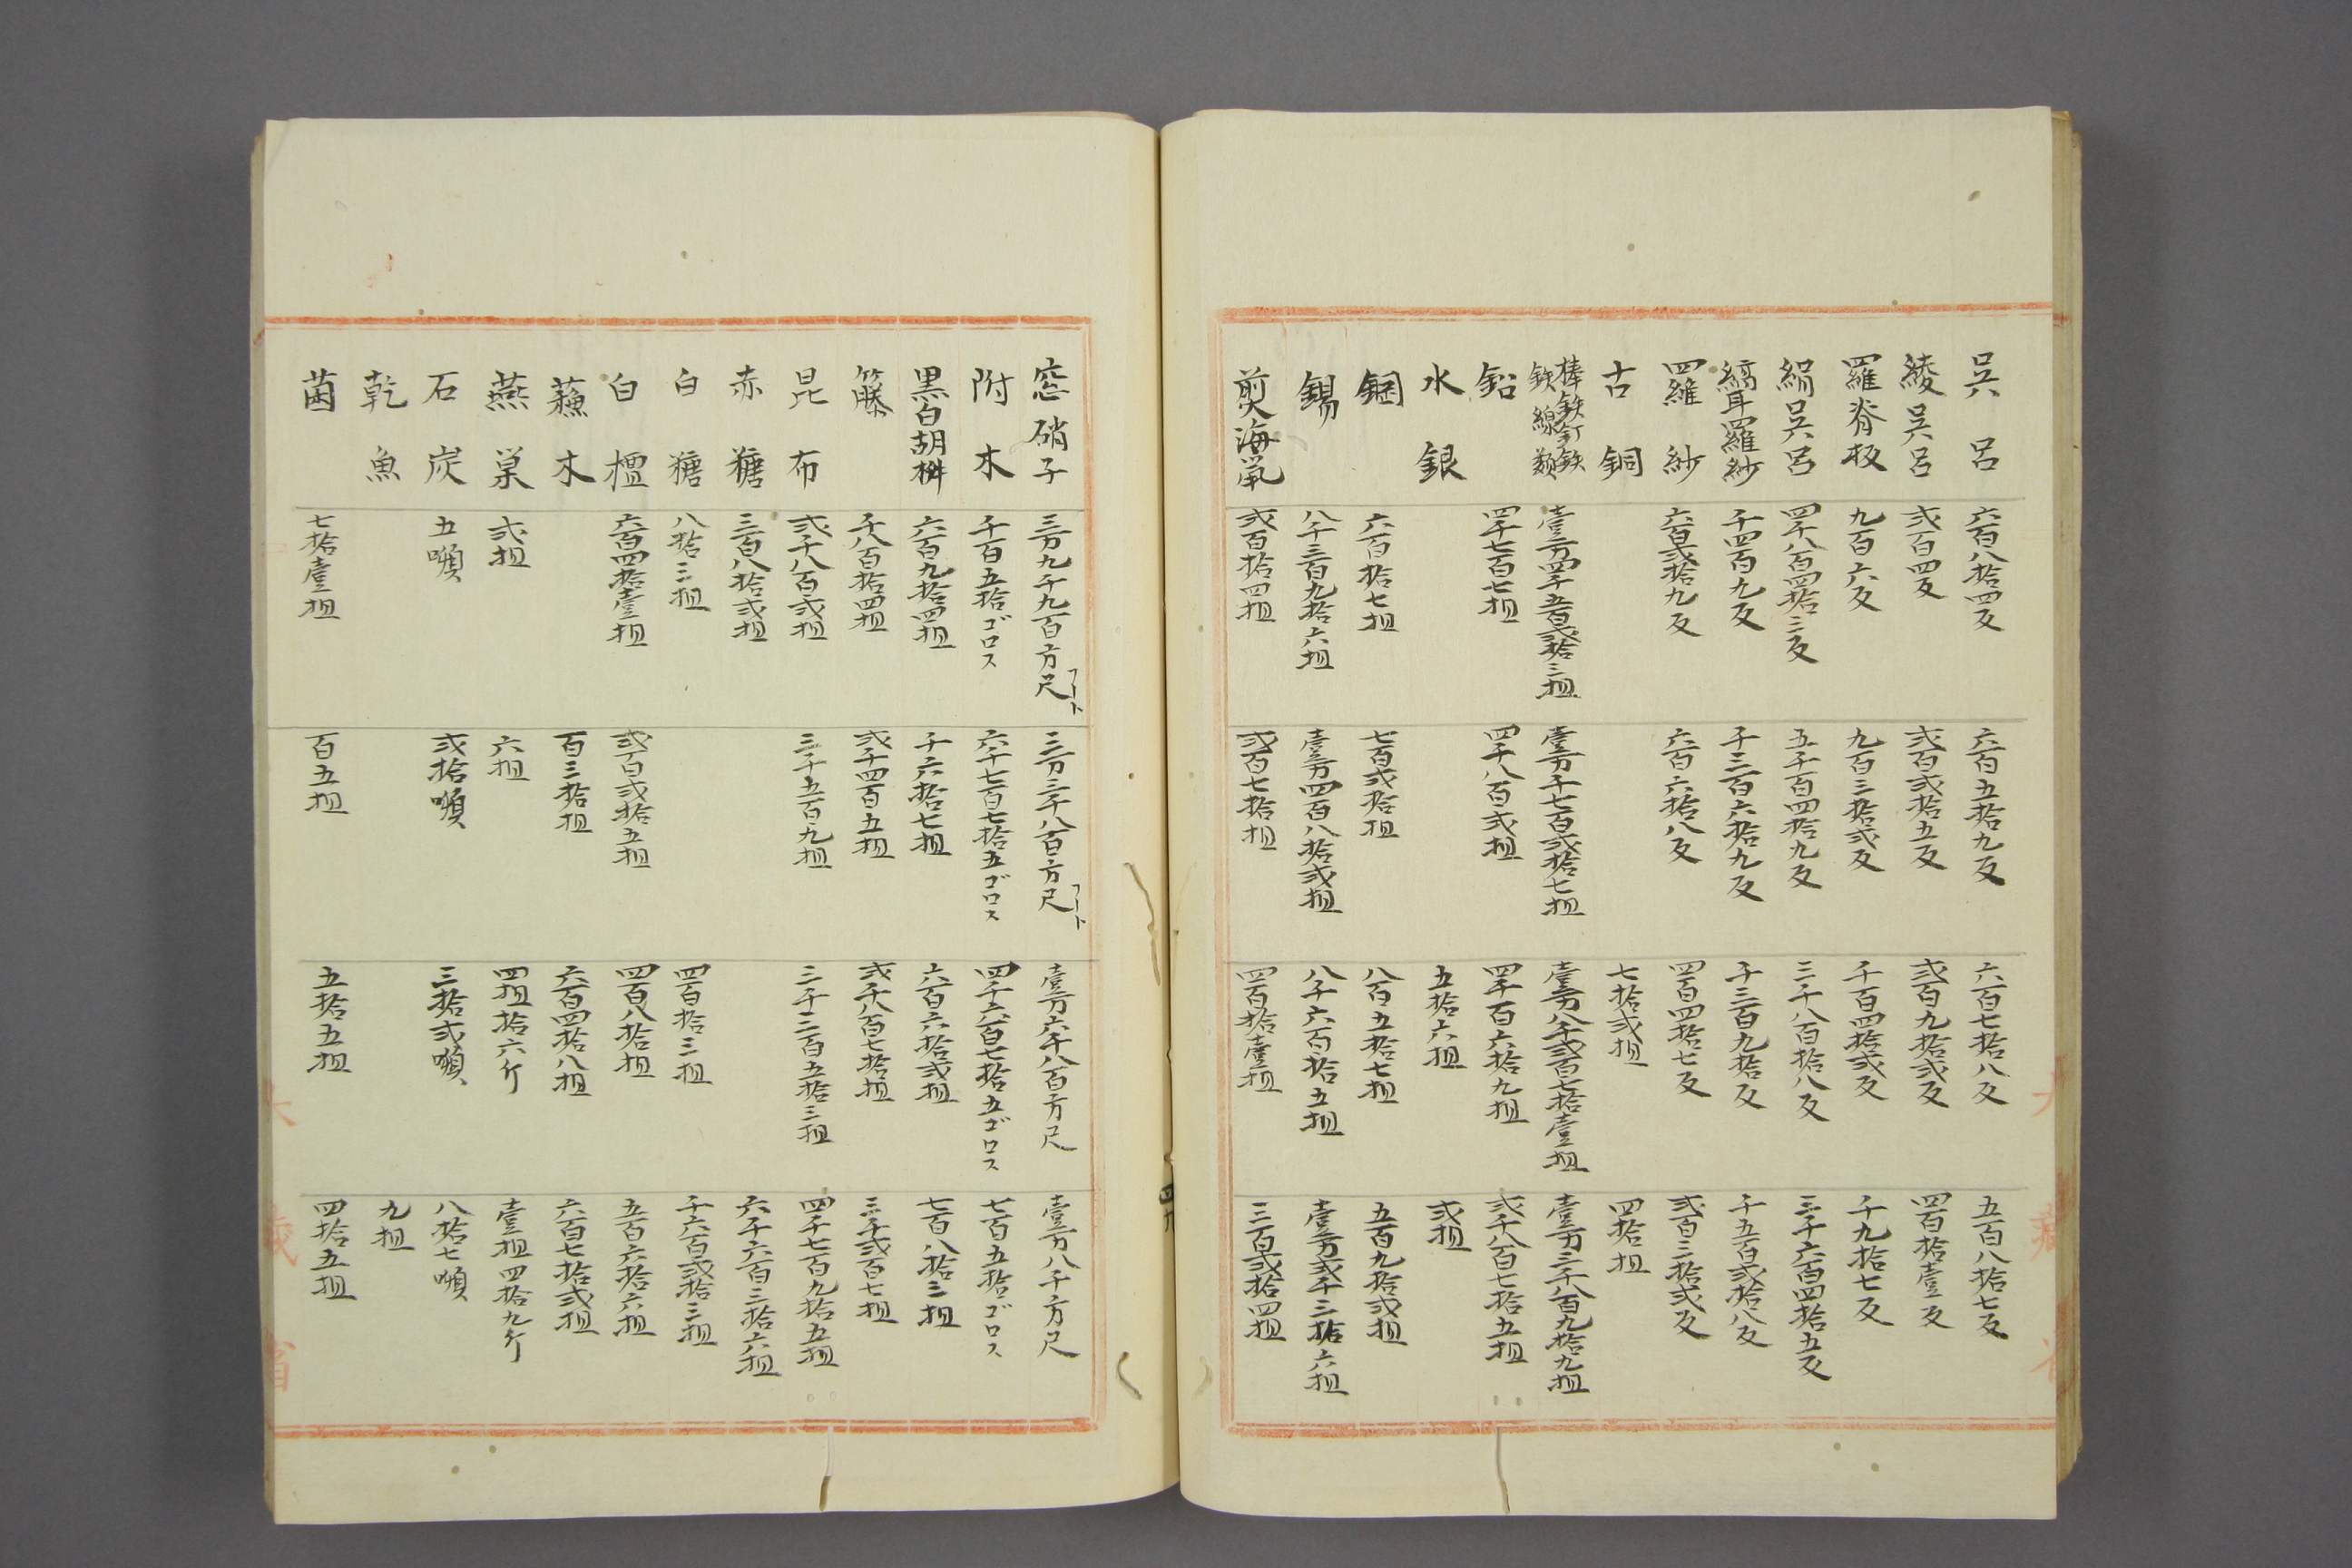 呉呂 六百八拾四反 六百五拾九反 六百七拾八反 五百八拾七反
綾呉呂 弐百四反 弐百弐拾五反 弐百九拾弐反 四百拾壹反
羅脊板 九百六反 九百三拾弐反 千百四拾弐反 千九拾七反
絹呉呂 四千八百四拾三反 五千百四拾九反 三千八百拾八反 三千六百四拾五反
縞耳羅紗 千四百九反 千三百六拾九反 千三百九拾反 千五百弐拾八反
四羅紗 六百弐拾九反 六百六拾八反 四百四拾七反 弐百三拾弐反
古銅 七拾弐担 四拾担
棒鉄釘鉄
鉄線類 壹万四千五百弐拾三担 壹万千七百弐拾七担 壹万八千弐百七拾壹担 壹万三千八百九拾九担
鉛 四千七百七担 四千八百弐担 四千百六拾九担 弐千八百七拾五担
水銀 五拾六担 弐担
鋼 六百拾七担 七百弐拾担 八百五拾七担 五百九拾弐担
錫 八千三百九拾六担 壹万四百八拾弐担 八千六百拾五担 壹万弐千三拾六担
煎海鼠 弐百拾四担 弐百七拾担 四百拾壹担 三百弐拾四担
四九
窓硝子 三万九千九百方尺フート 三万三千八百方尺フート 壹万六千八百方尺 壹万八千方尺
附木 千百五拾ゴロス 六千七百七拾五ゴロス 四千六百七拾五ゴロス 七百五拾ゴロス
黒白胡椒 六百九拾四担 千六拾七担 六百六拾弐担 七百八拾三担
籐 千八百拾四担 弐千四百五担 弐千八百七拾担 三千弐百七担
昆布 弐千八百弐担 三千五百九担 三千三百五拾三担 四千七百九拾五担
赤糖 三百八拾弐担 六千六百三拾六担
白糖 八拾三担 四百拾三担 千六百弐拾三担
白檀 六百四拾壹担 弐百弐拾五担 四百八拾担 五百六拾六担
蘓木 百三拾担 六百四拾八担 六百七拾弐担
燕巣 弐担 六担 四担拾六斤 壹担四拾九斤
石炭 五噸 弐拾噸 三拾弐噸 八拾七噸
乾魚 九担
菌 七拾壹担 百五担 五拾五担 四拾五担